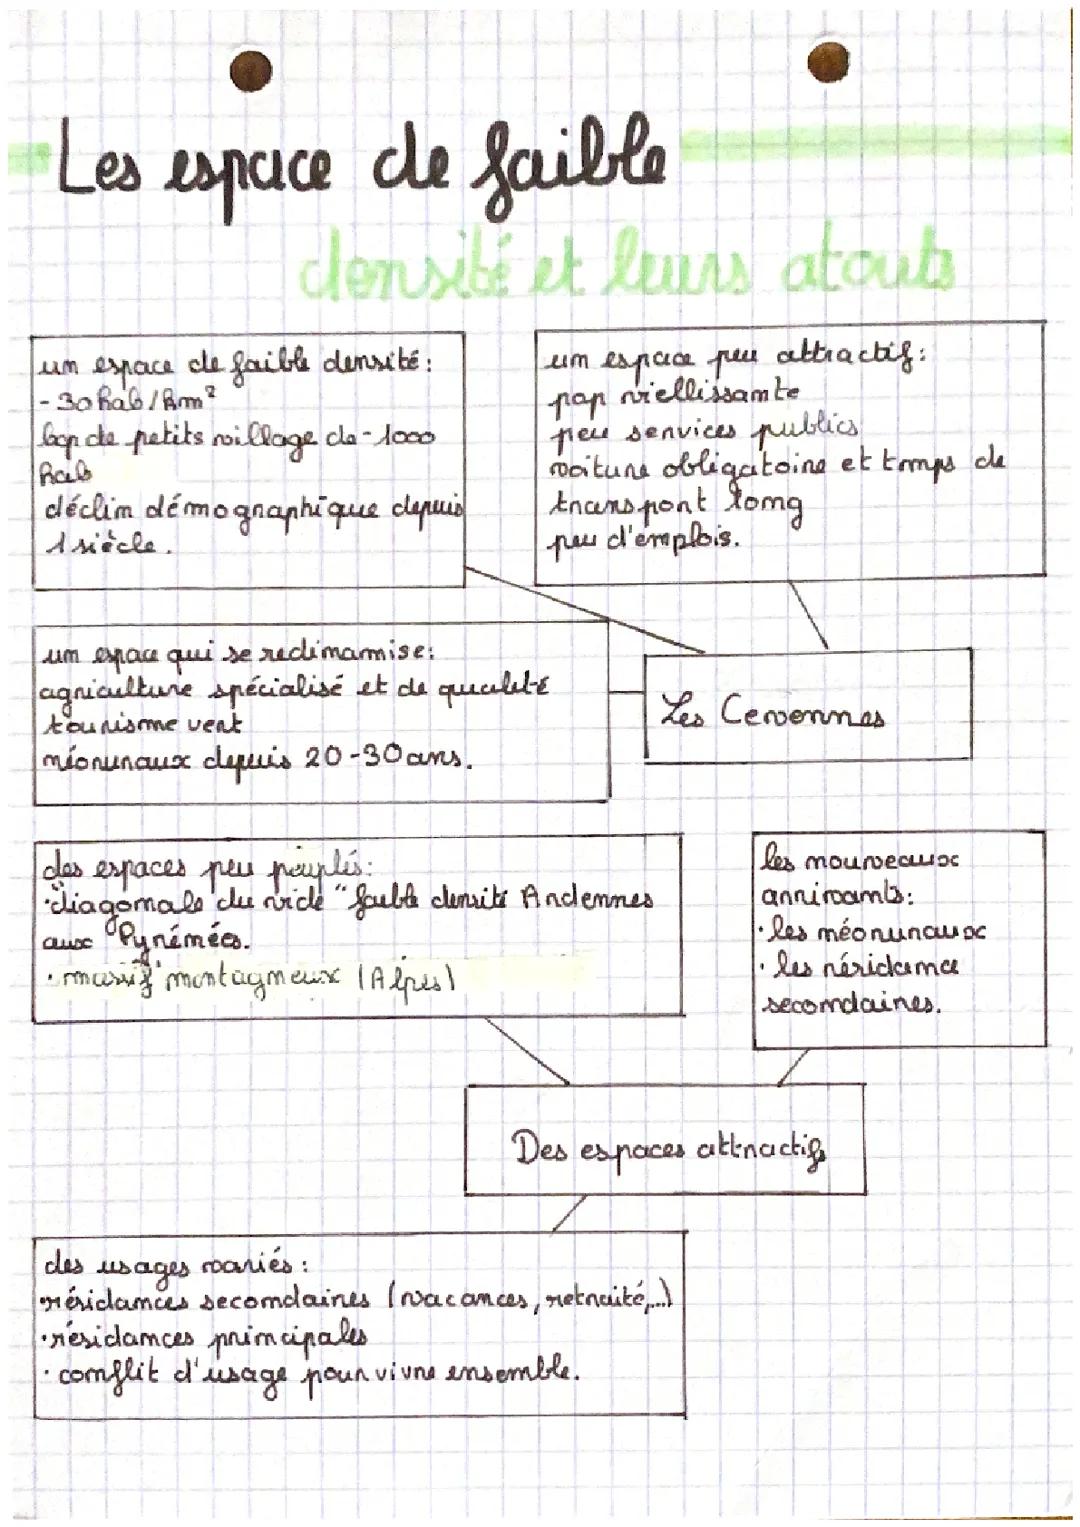 Les espace de faible
densité et leurs atouts
un espace de faible densité:
- 30 hab/km²
bcp de petits village de - 1000
hab
déclin démographique depuis
1 siècle.
un espace peu attractif:
pop viellissante
peu services publics
voiture obligatoire et temps de
transport long
peu d'emplois.
un espace qui se redinamise:
agriculture spécialisé et de qualité
tourisme vert
néoruraux depuis 20-30 ans.
Les Cevennes
des espaces peu peuplés:
"diagonale du vide" faible densité Ardennes
aux Pyrénées.
• massif montagneux (Alpes)
les nouveaux
arrivants:
• les néoruraux
• les résidance
secondaines.
Des espaces attractifs
des usages variés:
•résidances secondaines (vacances, retraité,...)
•résidances principales
• conflit d'usage pour vivre ensemble.